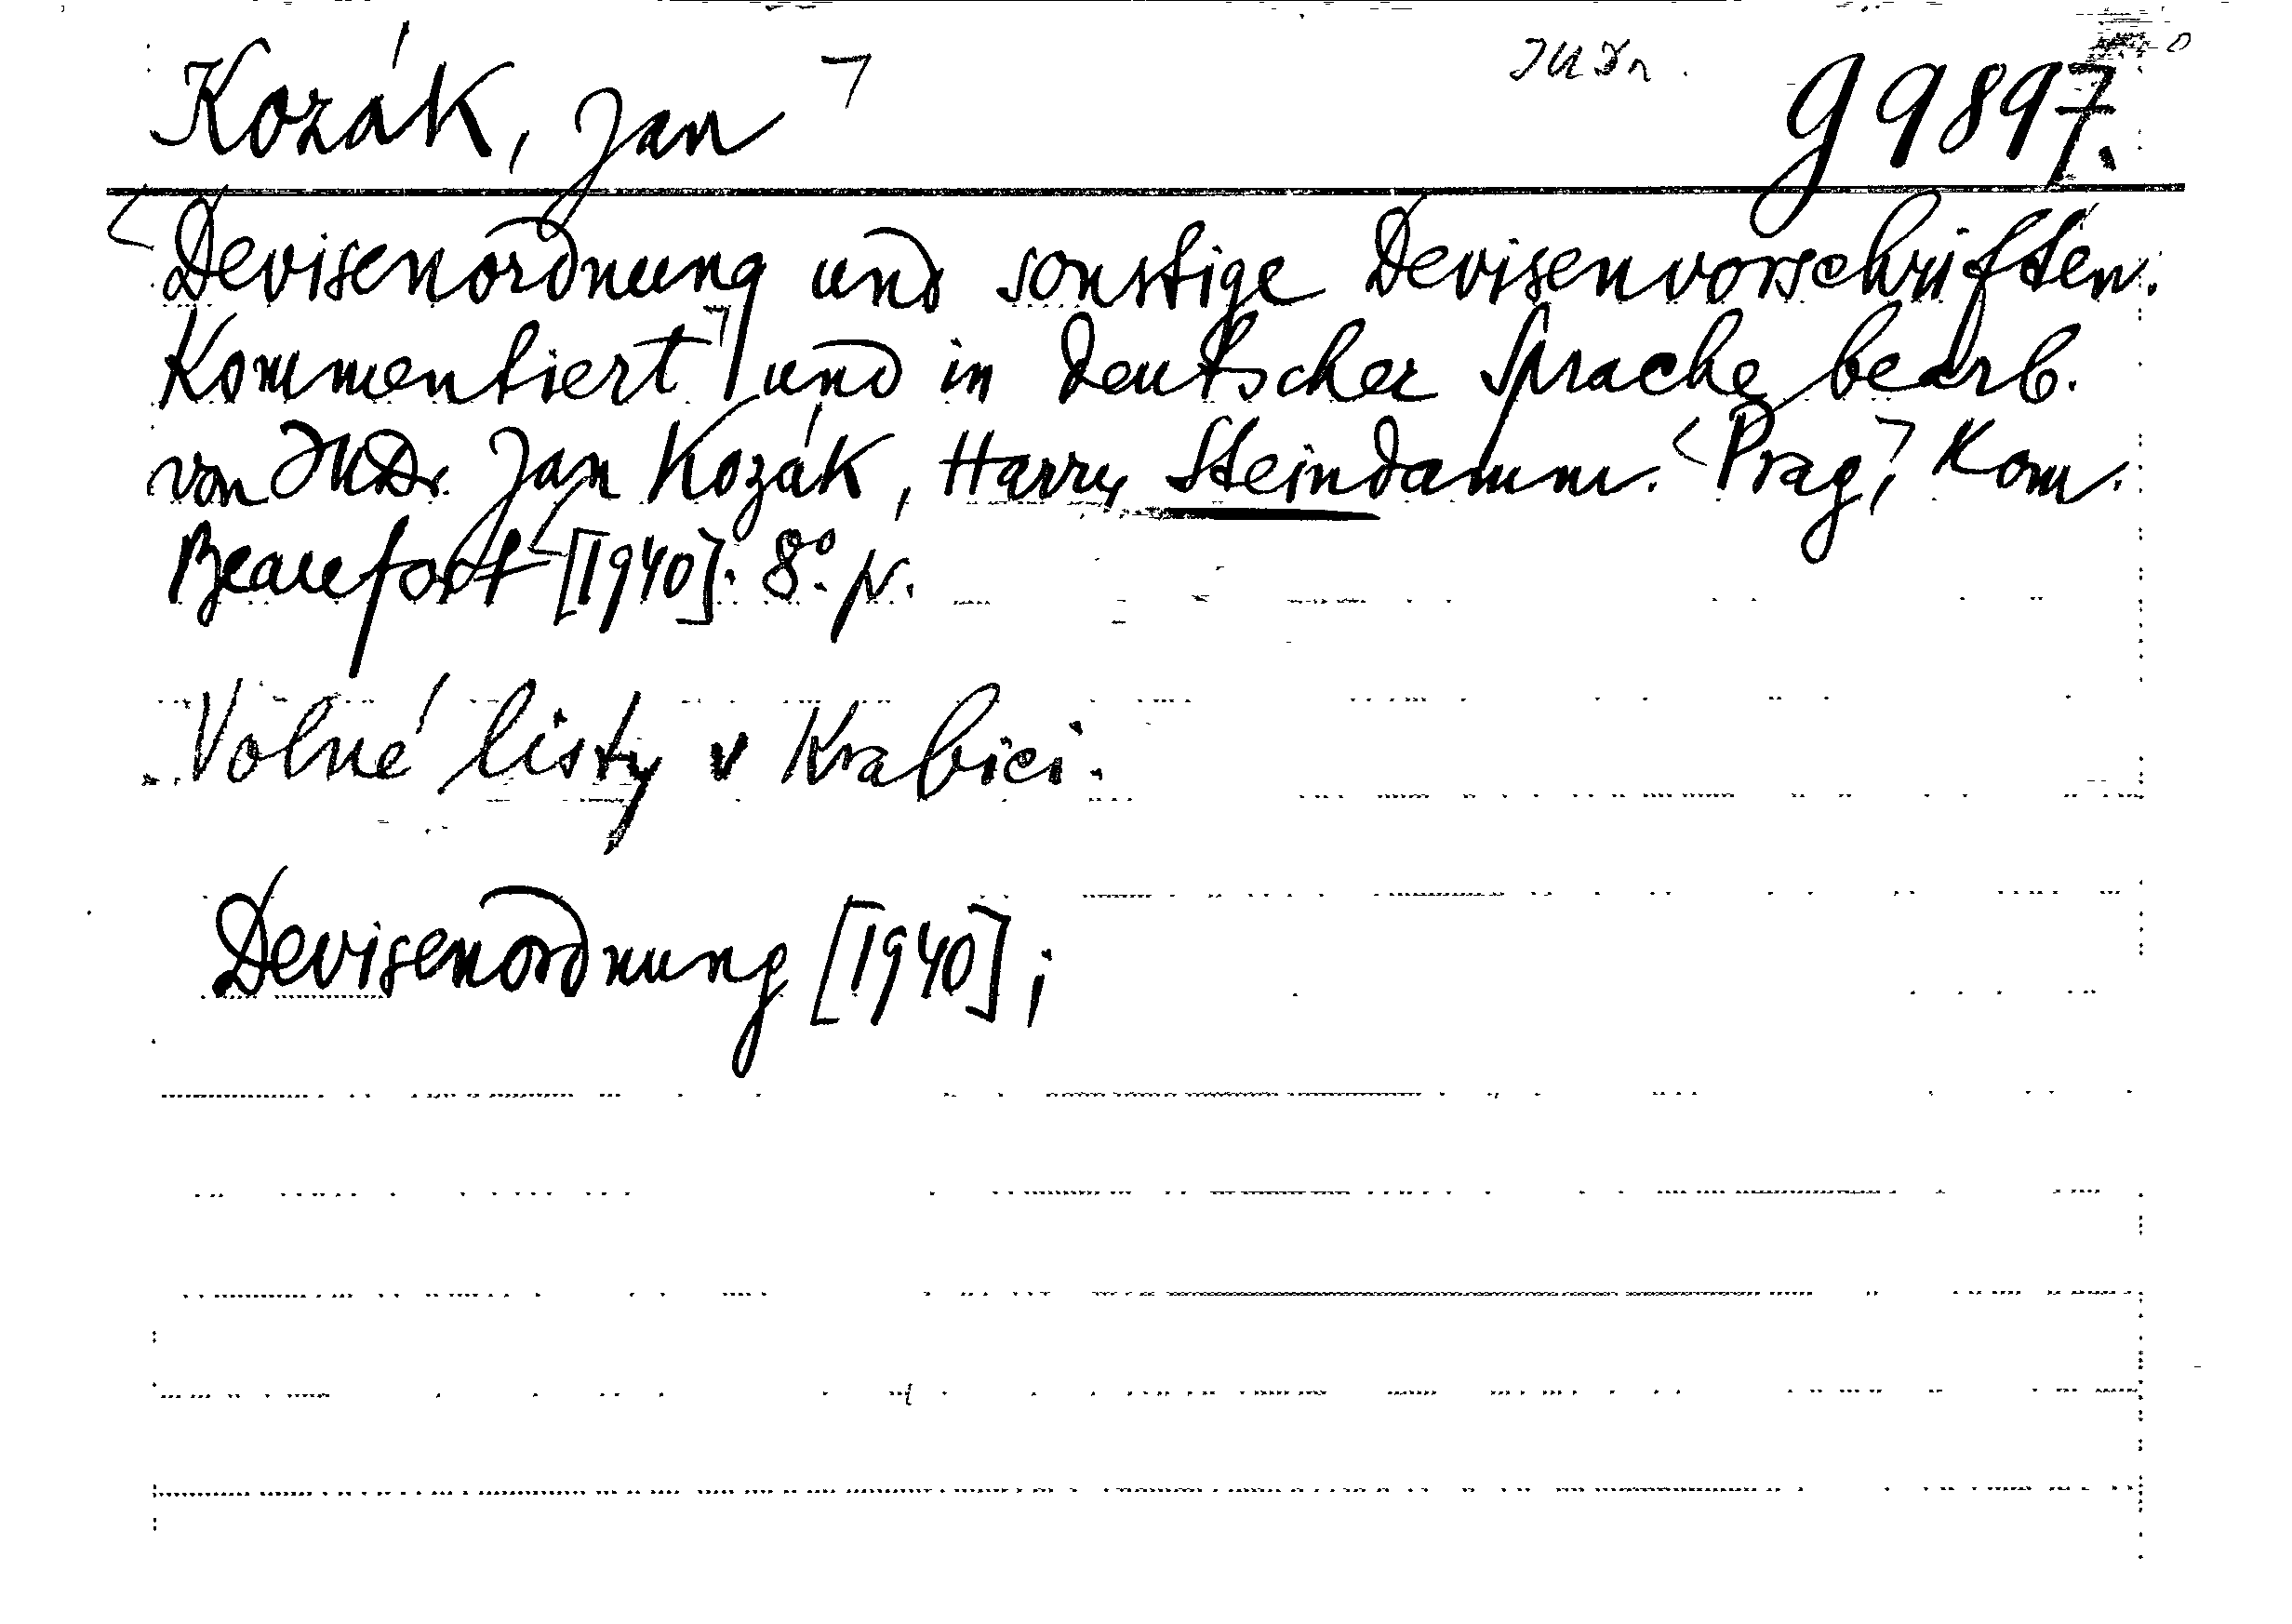 Kozák, Jan JUDr. g 9897.
Devisenordnung und sonstige Devisenvorschriften.
Kommentiert und in deutscher Sprache bearb.
von JUDr. Jan Kozák, Harry Steindamm. Prag, Kom.
Beaufort [1940]. 8°. p.
Volné listy v krabici.
Devisenordnung [1940];